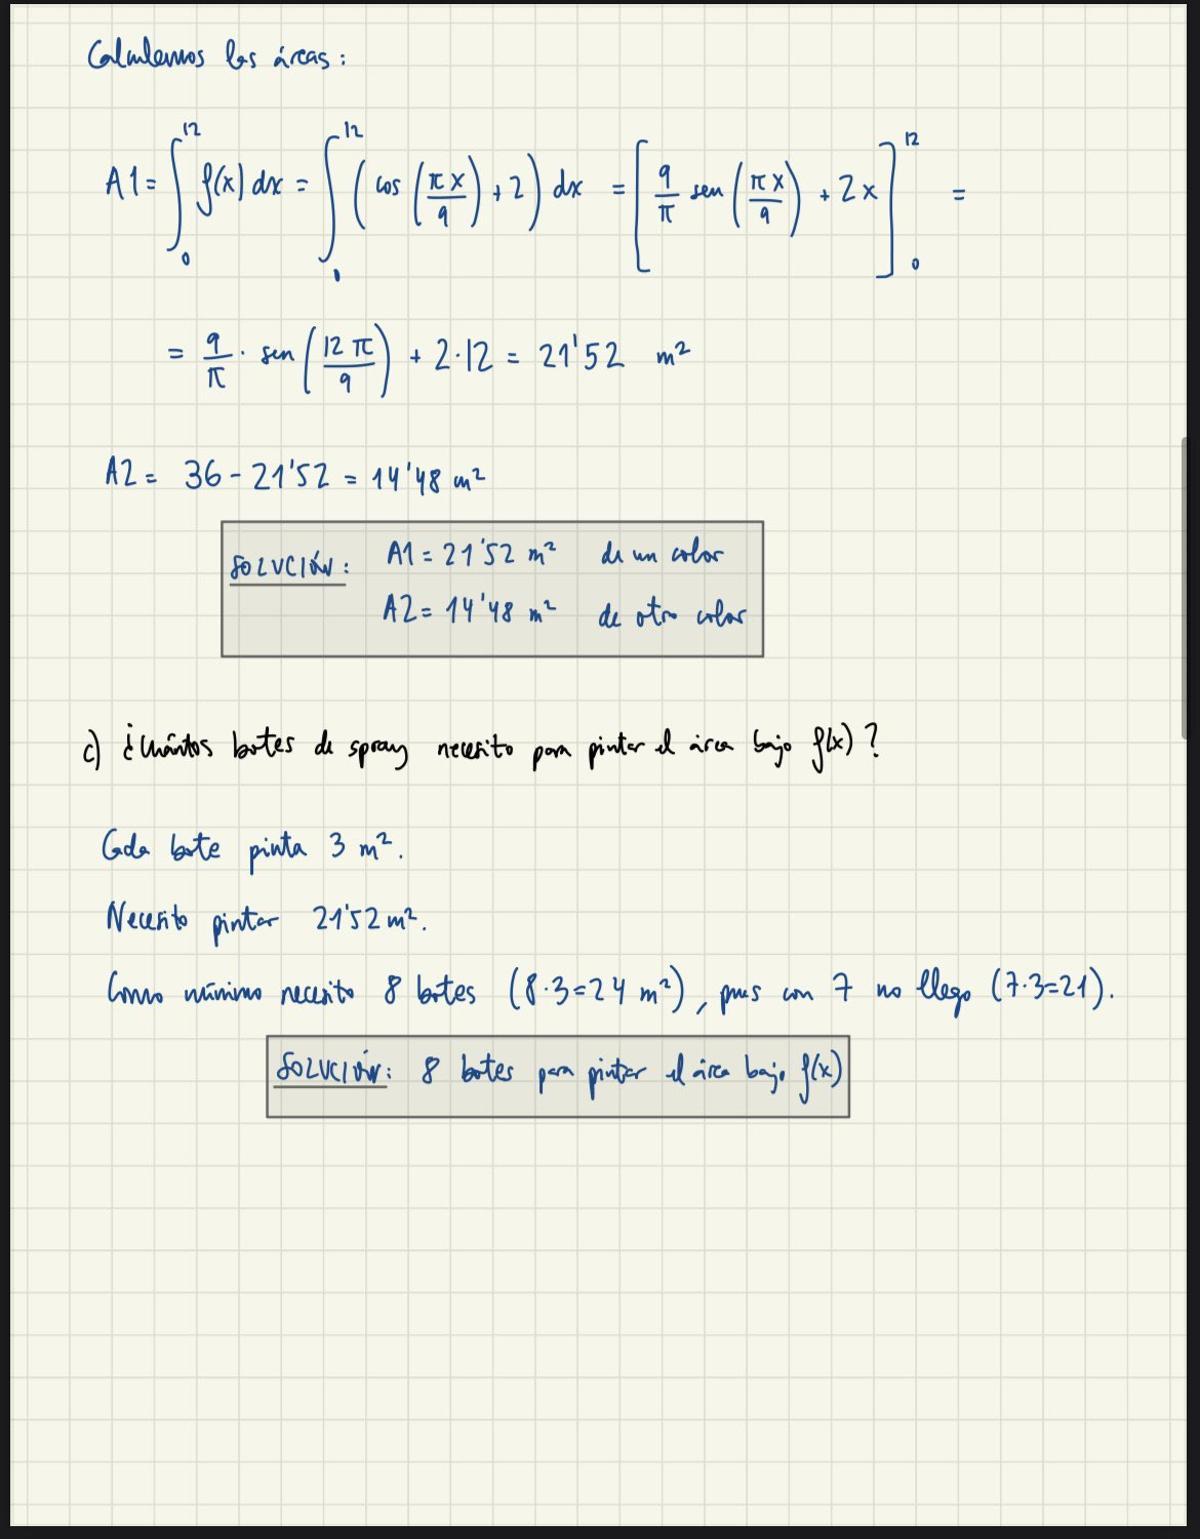 Calculemos las áreas:
A1 = ∫₀¹² f(x) dx = ∫₀¹² (cos(πx/9) + 2) dx = [9/π sen(πx/9) + 2x]₀¹² =
= 9/π · sen(12π/9) + 2·12 = 21'52 m²
A2 = 36 - 21'52 = 14'48 m²
SOLUCIÓN: A1 = 21'52 m² de un color
A2 = 14'48 m² de otro color
c) ¿Cuántos botes de spray necesito para pintar el área bajo f(x)?
Cada bote pinta 3 m².
Necesito pintar 21'52 m².
Como mínimo necesito 8 botes (8·3=24 m²), pues con 7 no llego (7·3=21).
SOLUCIÓN: 8 botes para pintar el área bajo f(x)